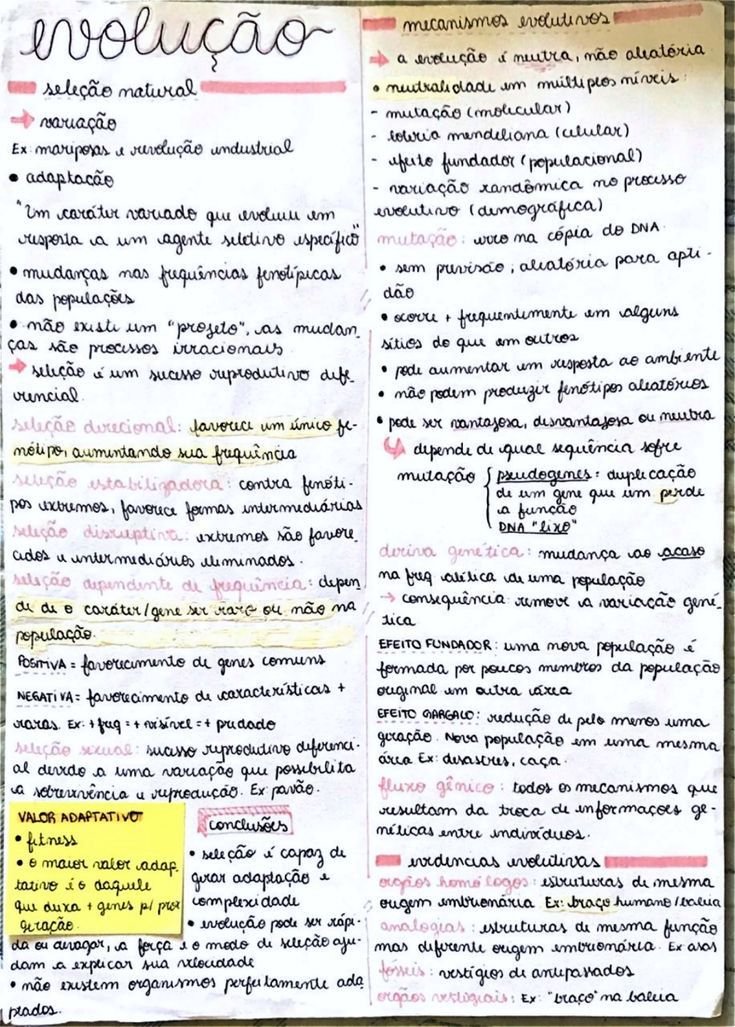 evolução
seleção natural
→ variação
Ex: mariposas e revolução industrial
• adaptação
"Um caráter variado que evoluiu em
resposta a um agente seletivo específico"
• mudanças nas frequências fenotípicas
das populações
• não existi um "projeto", as mudan-
ças são processos irracionais.
→ seleção é um sucesso reprodutivo dife-
rencial.
seleção direcional: favorece um único fe-
nótipo, aumentando sua frequência
seleção estabilizadora: contra fenóti-
pos extremos, favorece formas intermediárias
seleção disruptiva: extremos são favore-
cidos e intermediários eliminados.
seleção dependente de frequência: depen-
de de o caráter/gene ser raro ou não na
população.
POSITIVA = favorecimento de genes comuns
NEGATIVA = favorecimento de características +
raras. Ex: + freq = + visível = + predado
seleção sexual: sucesso reprodutivo diferenci-
al devido a uma variação que possibilita
a sobrevivência e reprodução. Ex: pavão.
VALOR ADAPTATIVO
• fitness
• o maior valor adap-
tativo é o daquele
que deixa + genes p/ prox
geração.
conclusões
• seleção é capaz de
gerar adaptação e
complexidade
• evolução pode ser rápi-
da ou devagar, a força e o modo de seleção aju-
dam a explicar sua velocidade
• não existem organismos perfeitamente ada
ptados.
mecanismos evolutivos
→ a evolução é neutra, não aleatória
• neutralidade em múltiplos níveis:
- mutação (molecular)
- teoria mendeliana (celular)
- efeito fundador (populacional)
- variação randômica no processo
evolutivo (demográfica)
mutação: erro na cópia do DNA
• sem previsão; aleatória para apti-
dão
• ocorre + frequentimente em alguns
sítios do que em outros
• pode aumentar em resposta ao ambiente
• não podem produzir fenótipos aleatórios
• pode ser vantajosa, desvantajosa ou neutra
↳ depende de qual sequência sofre
mutação { pseudogenes: duplicação
de um gene que um perde
a função
DNA "lixo"
deriva genética: mudança ao acaso
na freq alélica de uma população
→ consequência: remove a variação gené-
tica
EFEITO FUNDADOR: uma nova população é
formada por poucos membros da população
original em outra área
EFEITO GARGALO: redução de pelo menos uma
geração. Nova população em uma mesma
área Ex: desastres, caça.
fluxo gênico: todos os mecanismos que
resultam da troca de informações ge-
néticas entre indivíduos.
evidencias evolutivas
orgãos homólogos: estruturas de mesma
origem embrionária Ex: braço humano/baleia
analogias: estruturas de mesma função
mas diferente origem embrionária. Ex asas
fósseis: vestígios de antepassados
orgãos vestigiais: Ex: "braço" na baleia